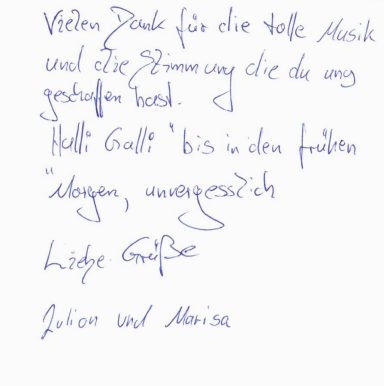 Vielen Dank für die tolle Musik
und die Stimmung die du uns
geschaffen hast.
"Halli Galli" bis in den frühen
Morgen, unvergesslich
Liebe Grüße
Julian und Marisa